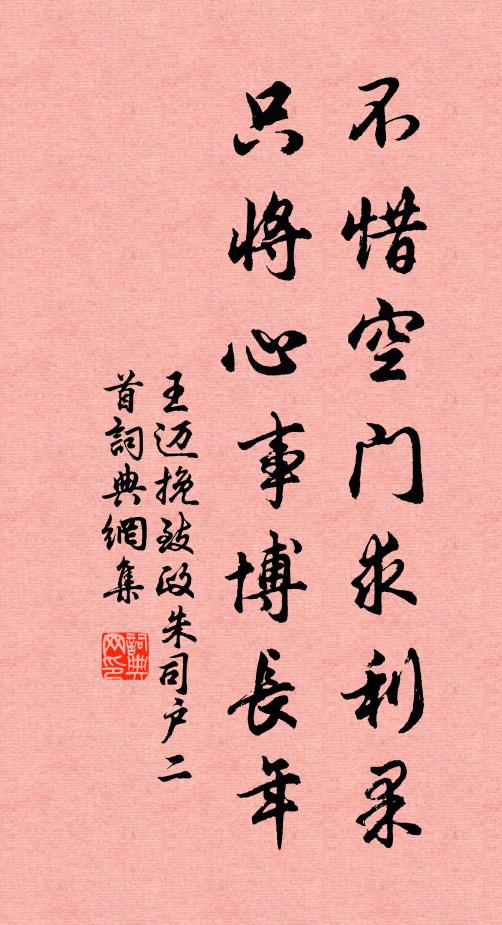 不惜空門求利果
只將心事博長年
王迈挽致政朱司户二
首詞典網集
詞典网印